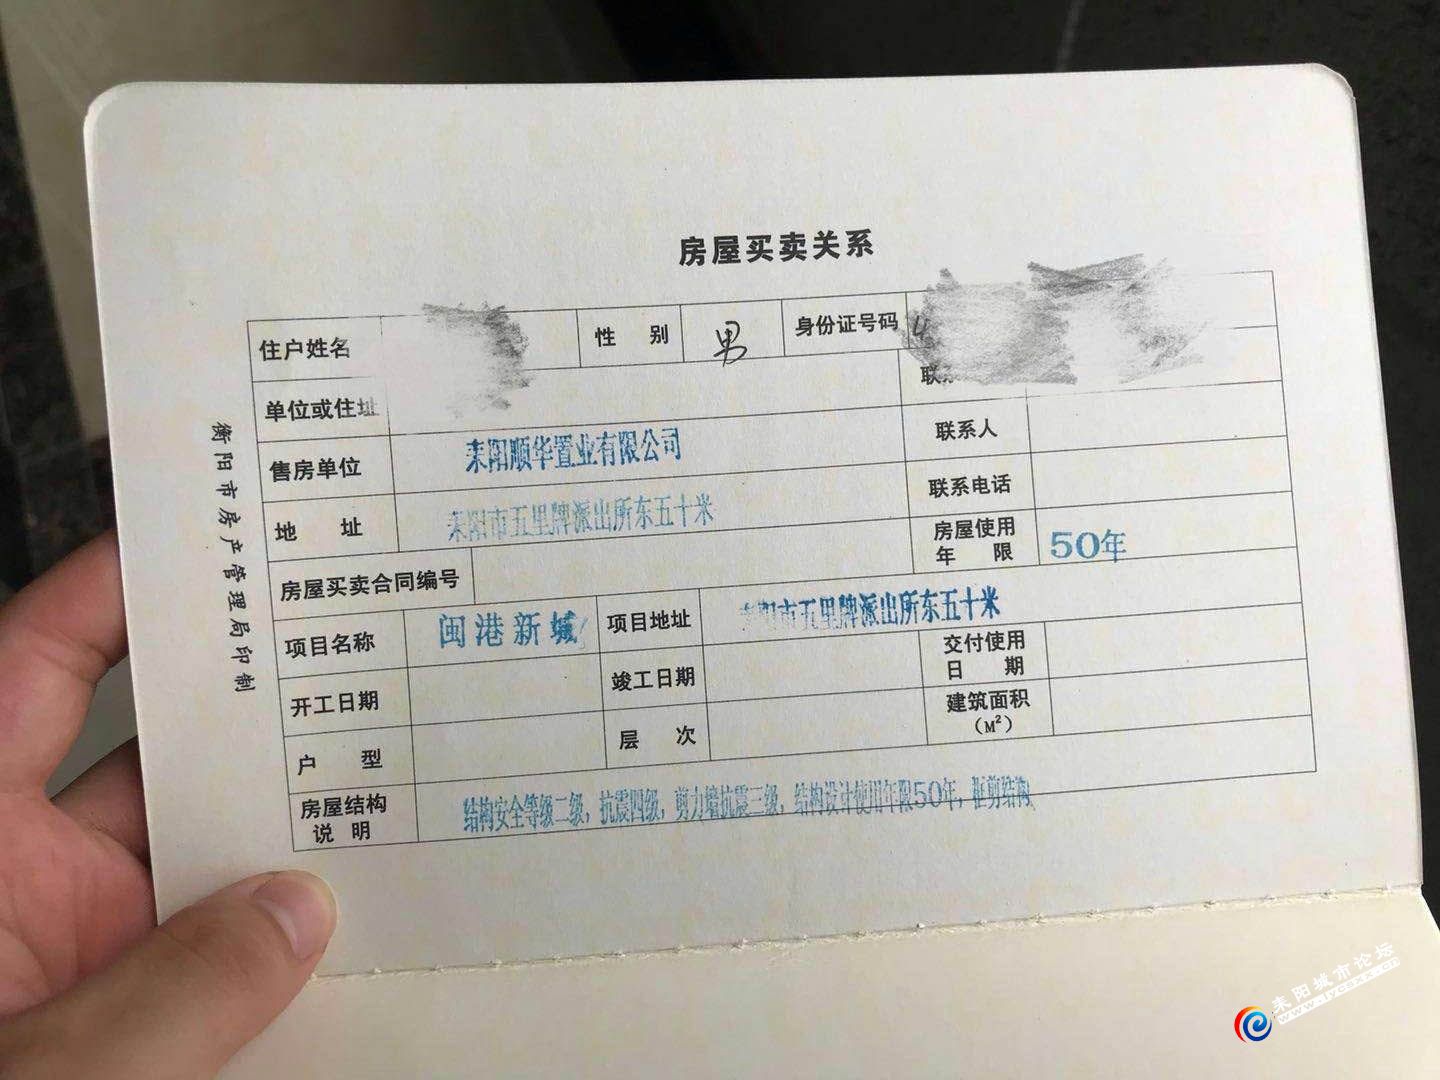 房屋买卖关系
住户姓名 性 别 男 身份证号码
单位或住址 联系
售房单位 耒阳顺华置业有限公司 联系人
地 址 耒阳市五里牌派出所东五十米 联系电话
房屋买卖合同编号 房屋使用年 限 50年
项目名称 闽港新城 项目地址 耒阳市五里牌派出所东五十米
开工日期 竣工日期 交付使用日 期
户 型 层 次 建筑面积(M²)
房屋结构说 明 结构安全等级二级，抗震四级，剪力墙抗震三级，结构设计使用年限50年，框剪结构
衡阳市房产管理局印制
耒阳城市论坛
www.lycsxx.cn